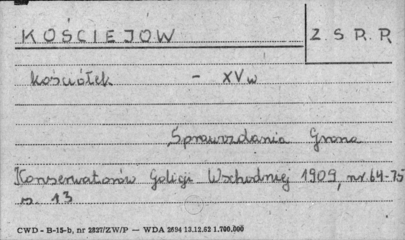 KOŚCIEJOW
Z. S. R. R.
kościółek - XV w
Sprawozdania Grona
Konserwatorów Galicji Wschodniej 1909, nr. 64-75
s. 13
CWD - B-15-b, nr 2837/ZW/P — WDA 2694 13.12.52 1.700.000